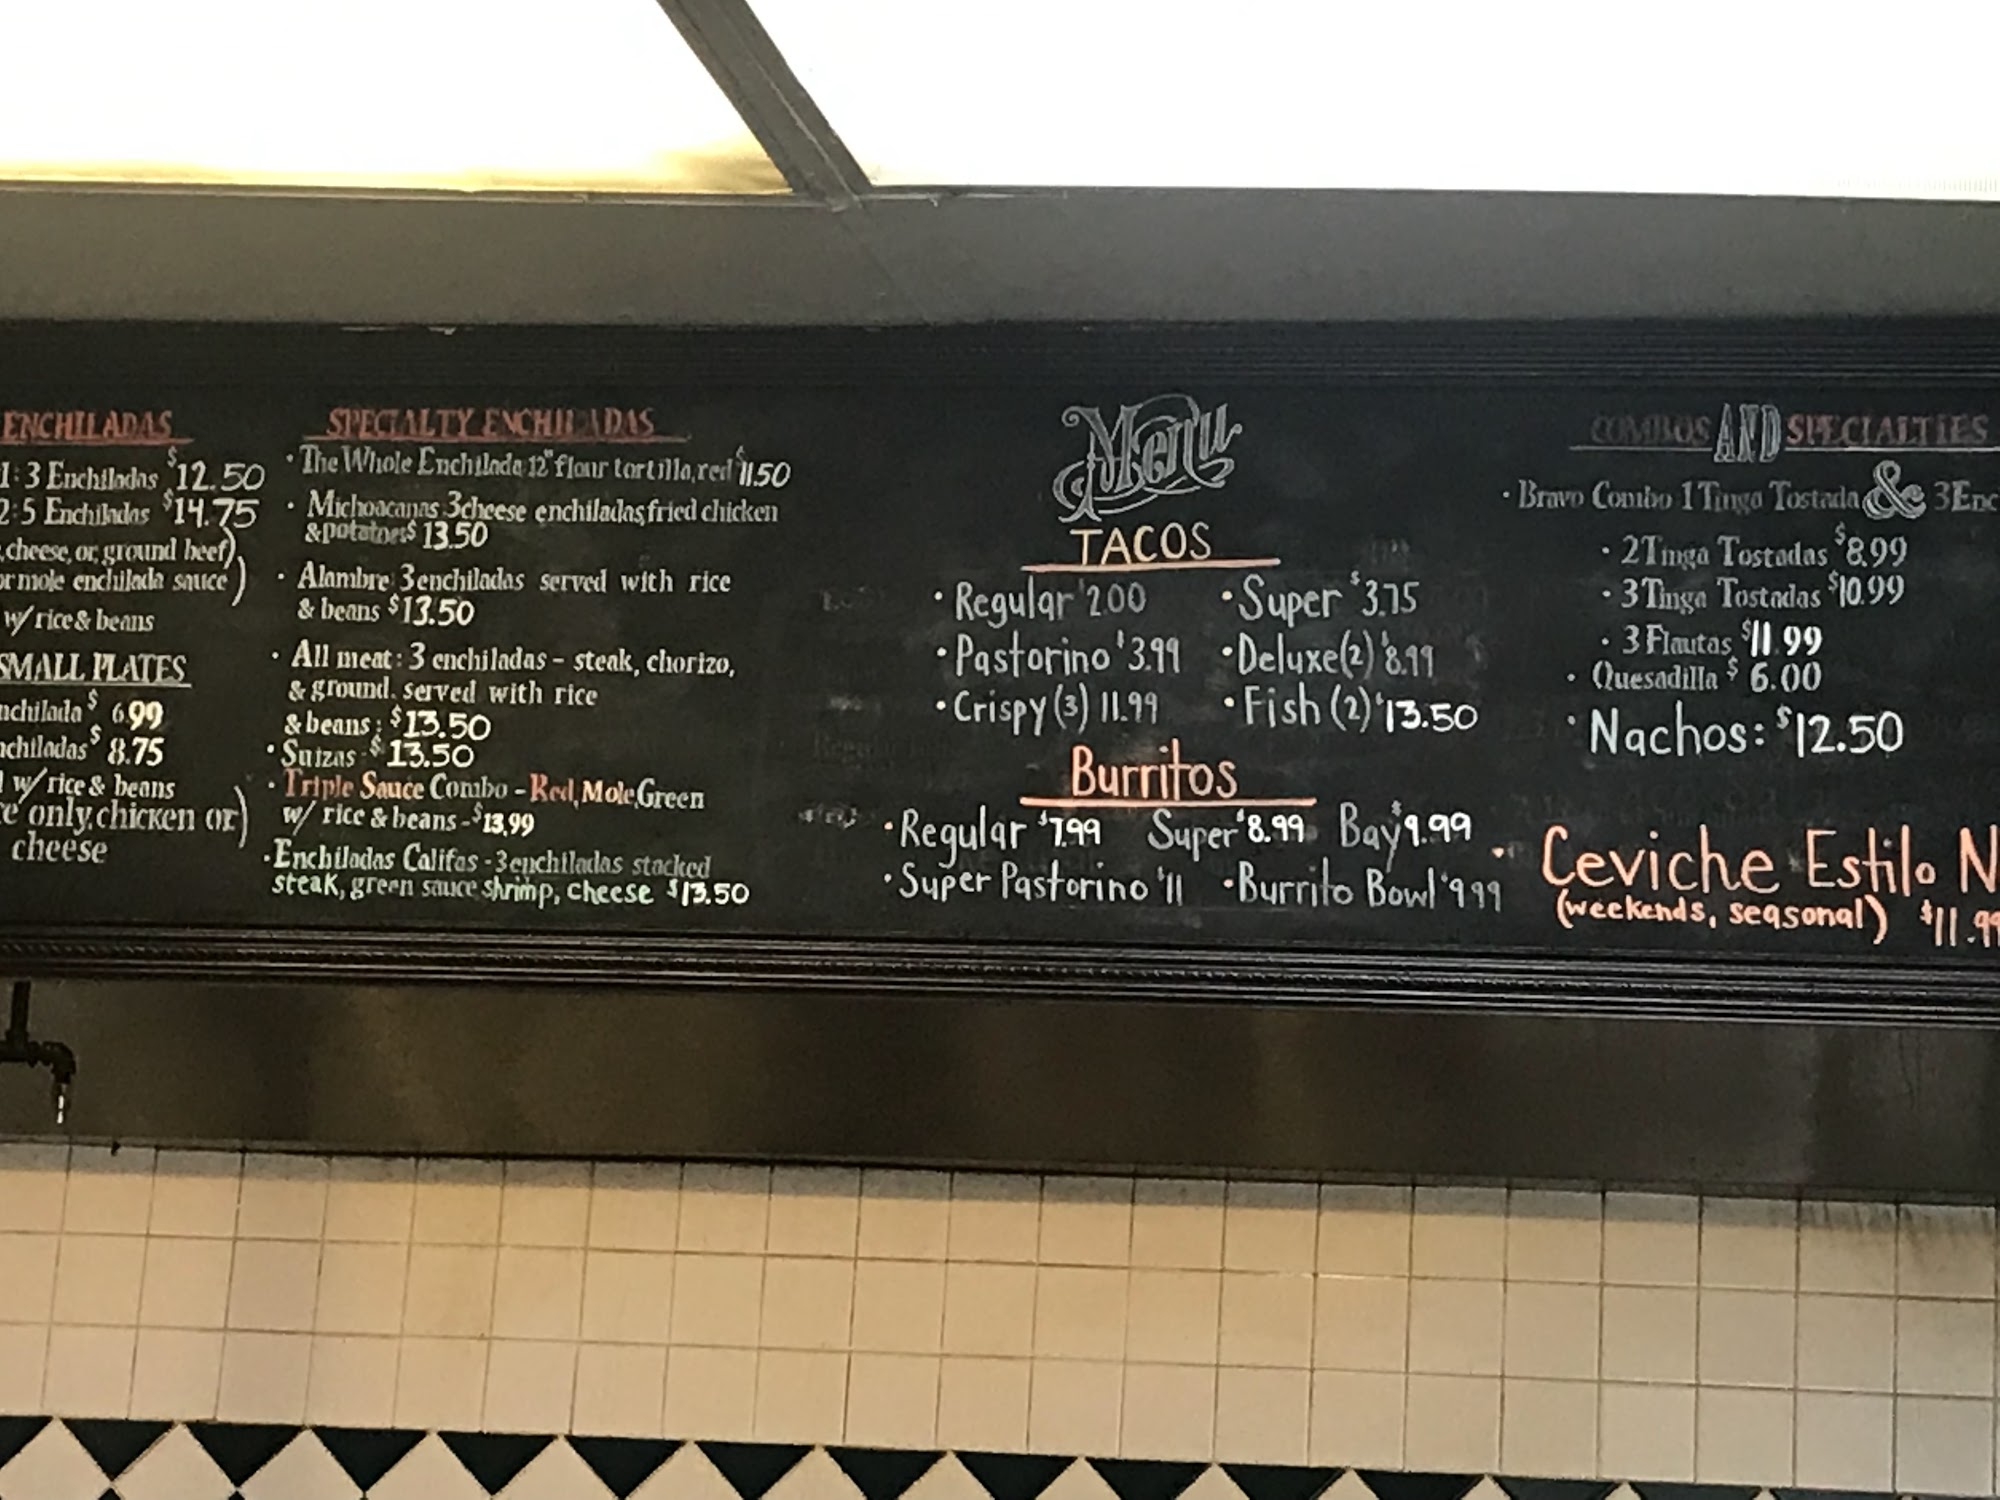 ENCHILADAS
1: 3 Enchiladas $12.50
2: 5 Enchiladas $14.75
, cheese, or, ground beef)
or mole enchilada sauce)
w/ rice & beans
SMALL PLATES
nchilada $ 6.99
nchiladas $ 8.75
w/ rice & beans
e only, chicken or)
cheese
SPECIALTY ENCHILADAS
· The Whole Enchilada 12" flour tortilla, red $11.50
· Michoacanas 3 cheese enchiladas, fried chicken
& potatoes $ 13.50
· Alambre: 3 enchiladas served with rice
& beans $13.50
· All meat: 3 enchiladas - steak, chorizo,
& ground. served with rice
& beans: $13.50
· Suizas - $ 13.50
· Triple Sauce Combo - Red, Mole, Green
w/ rice & beans - $13.99
· Enchiladas Califas - 3 enchiladas stacked
steak, green sauce, shrimp, cheese $13.50
Menu
TACOS
· Regular $2.00 · Super $3.75
· Pastorino $3.99 · Deluxe (2) $8.99
· Crispy (3) 11.99 · Fish (2) $13.50
Burritos
· Regular $7.99 Super $8.99 Bay $9.99
· Super Pastorino $11 · Burrito Bowl $9.99
COMBOS AND SPECIALTIES
· Bravo Combo 1 Tinga Tostada & 3 Enc
· 2 Tinga Tostadas $8.99
· 3 Tinga Tostadas $10.99
· 3 Flautas $11.99
· Quesadilla $ 6.00
· Nachos: $12.50
· Ceviche Estilo N
(weekends, seasonal) $11.99